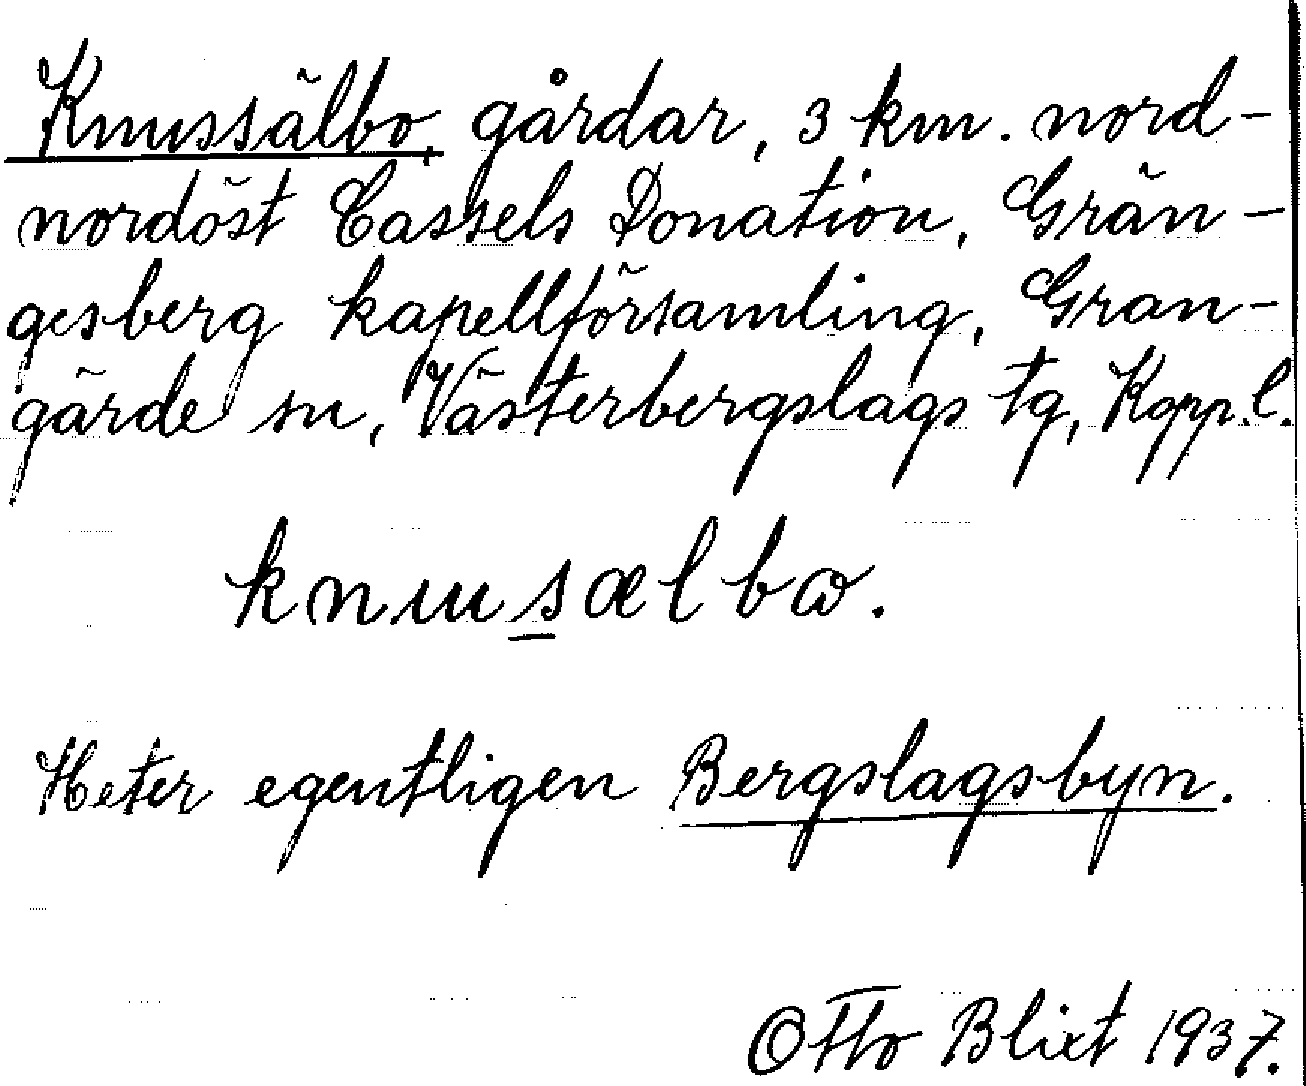 Knussälbo, gårdar, 3 km. nord-
nordöst Cassels Donation, Grän-
gesberg kapellförsamling, Gran-
gärde sn, Västerbergslags tg, Kopp.l.
knusælbω.
Heter egentligen Bergslagsbyn.
Otto Blixt 1937.